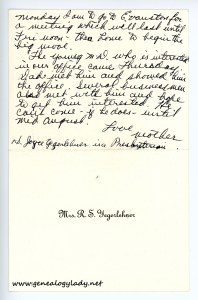 monday I am to go to Evanston for
a meeting which will last until
Fri noon - then home to begin the
big move.
The young M.D. who is interested
in our office came Thursday
Wake met him and showed him
the office. Several businessmen
also met with him and hope
to get him interested. He
can't come - if he does - until
mid August.
Love
Mother
Joyce Yegerlehner is a Presbyterian.
Mrs. R. S. Yegerlehner
www.genealogylady.net